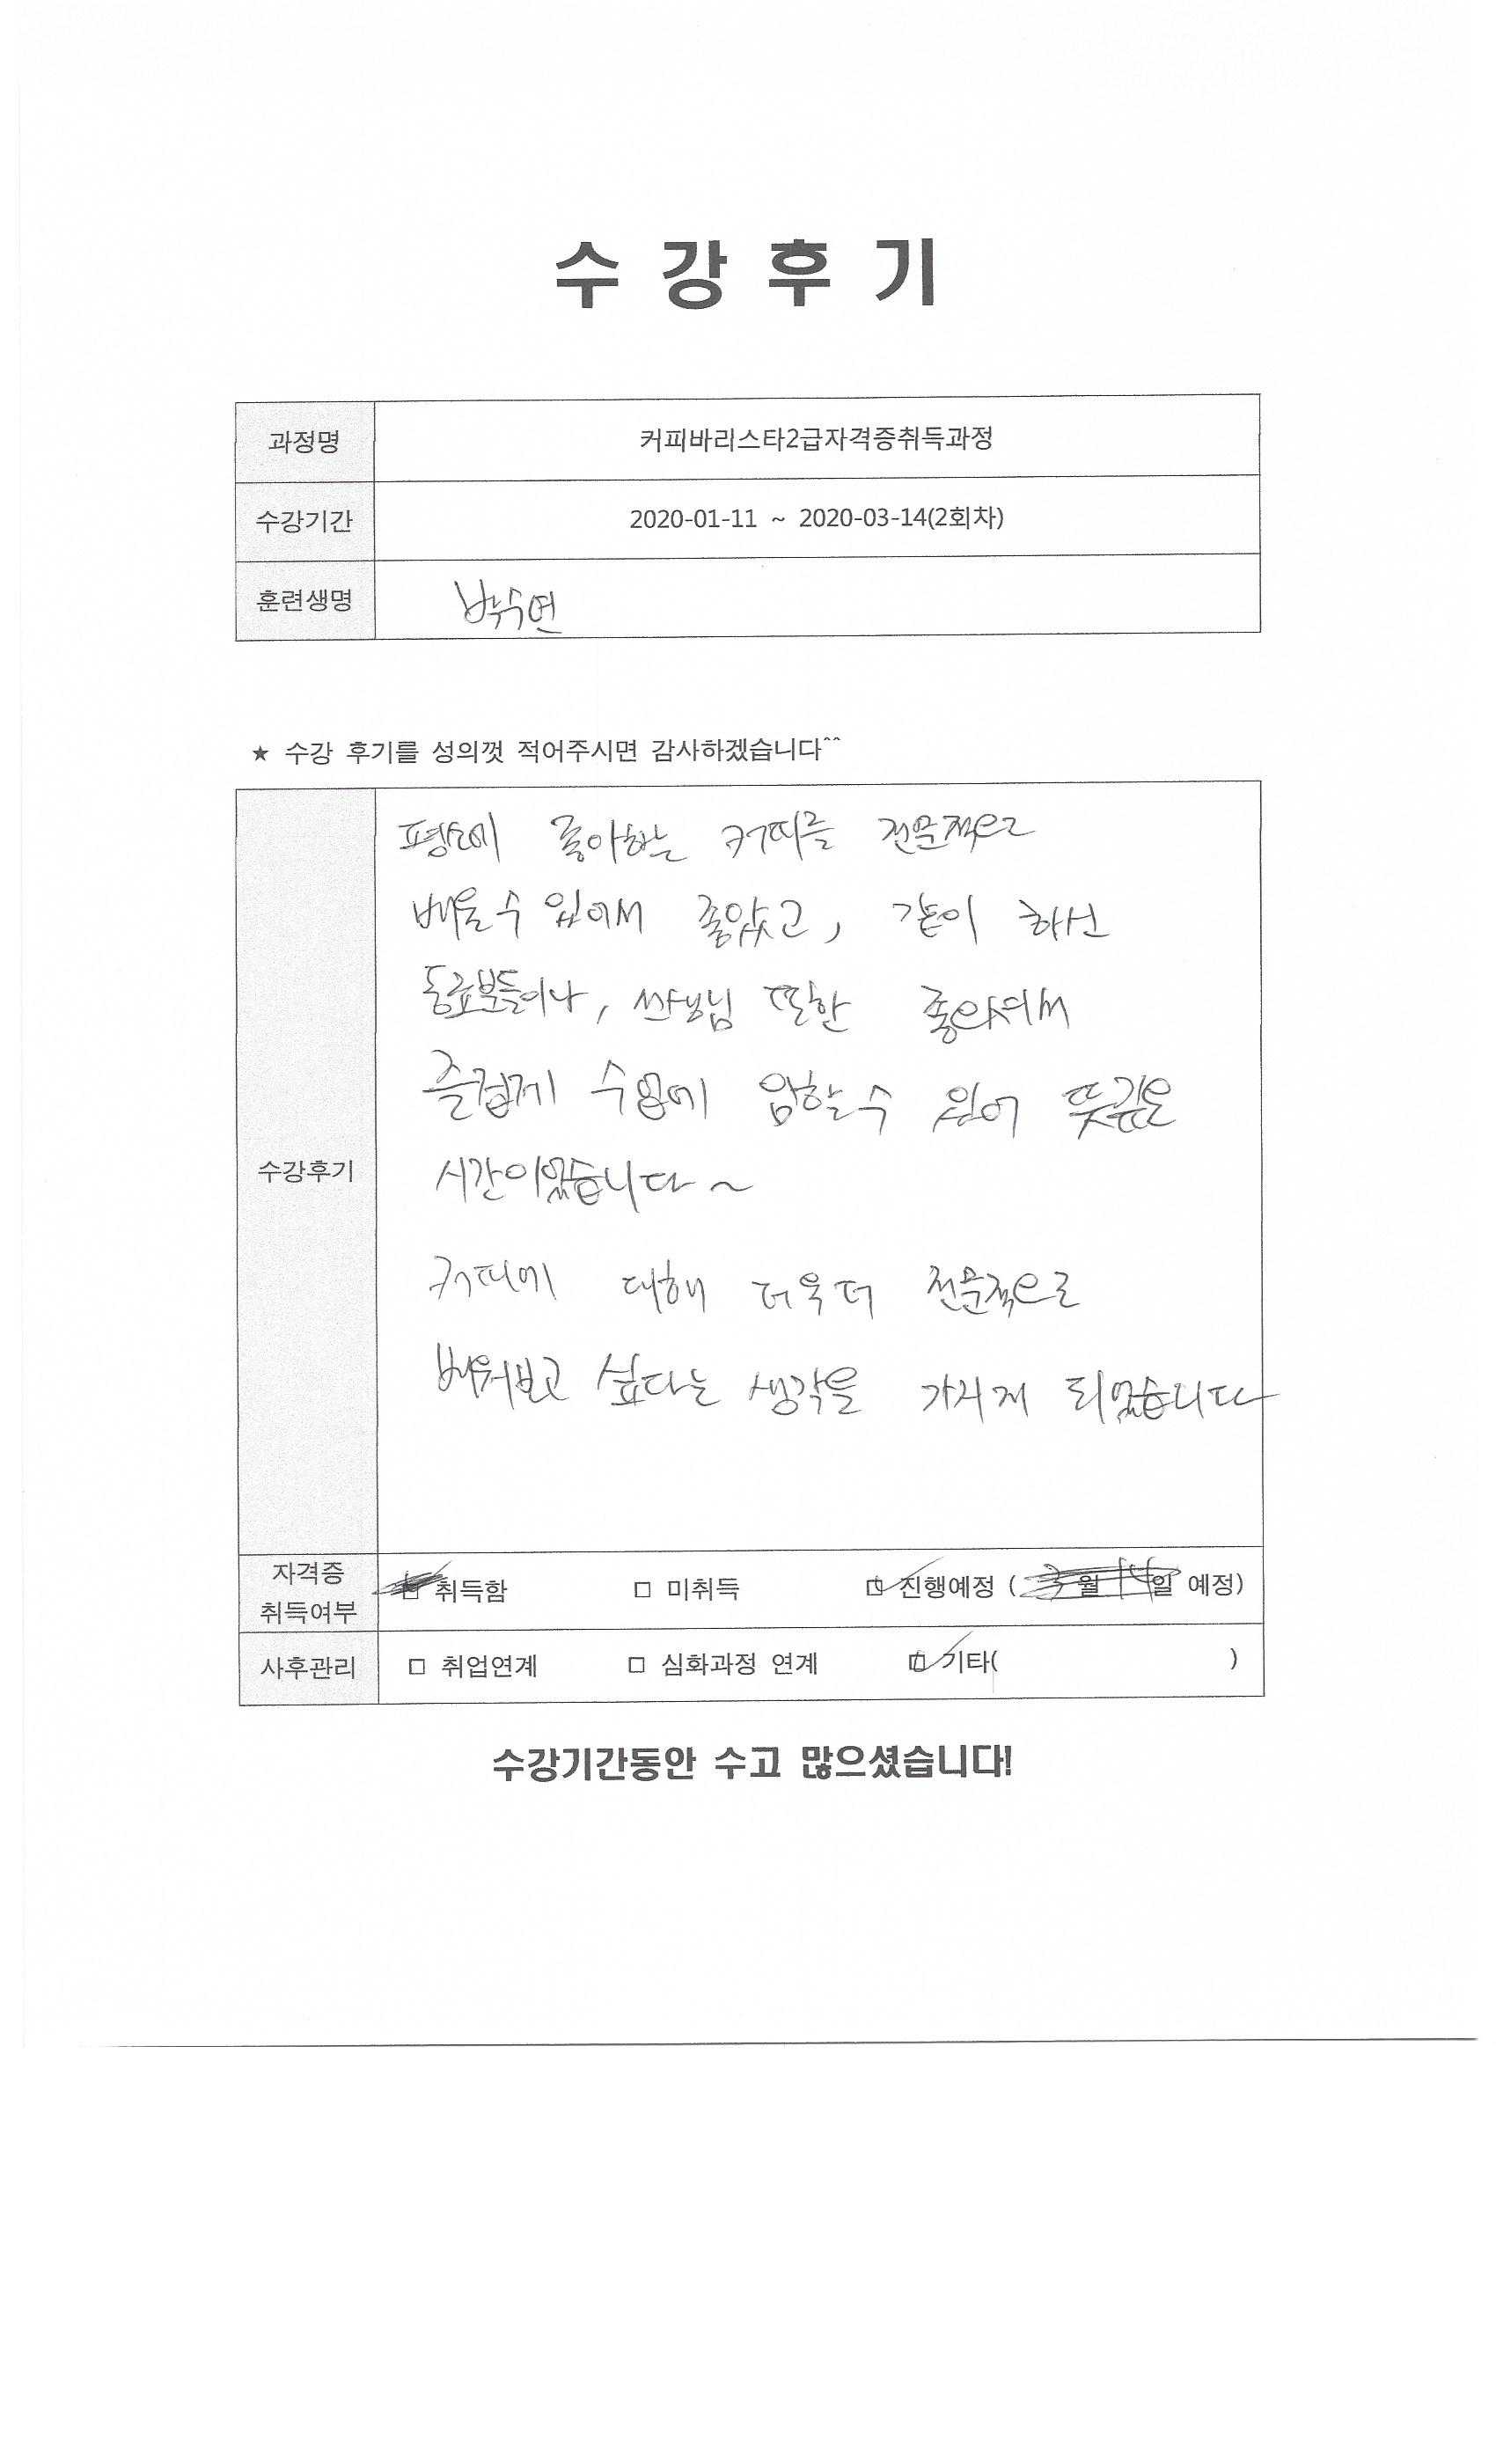 수강후기
과정명 커피바리스타2급자격증취득과정
수강기간 2020-01-11 ~ 2020-03-14(2회차)
훈련생명 박수연
★ 수강 후기를 성의껏 적어주시면 감사하겠습니다^^
평소에 좋아하는 커피를 전문적으로
배울수 있어서 좋았고, 같이 하신
동료분들이나, 선생님 또한 좋으셔서
즐겁게 수업에 임할수 있어 뜻깊은
수강후기
시간이었습니다~
커피에 대해 더욱더 전문적으로
배워보고 싶다는 생각을 가지게 되었습니다
자격증 취득여부 □ 취득함 □ 미취득 □ 진행예정 ( 3월 14일 예정)
사후관리 □ 취업연계 □ 심화과정 연계 □ 기타( )
수강기간동안 수고 많으셨습니다!